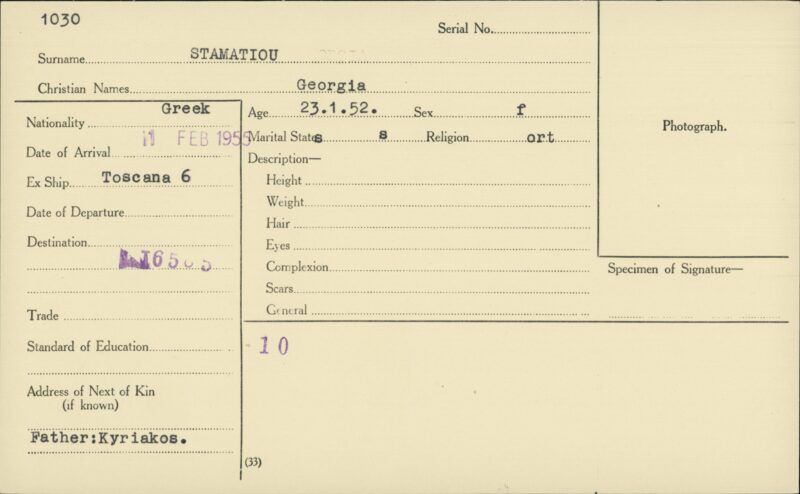 1030
Serial No.
Surname STAMATIOU
Christian Names Georgia
Nationality Greek
Age 23.1.52. Sex f
Date of Arrival 11 FEB 1955
Marital States s Religion ort
Photograph.
Ex Ship Toscana 6
Description—
Height
Weight
Date of Departure
Hair
Destination
Eyes
Complexion
Specimen of Signature—
Scars
General
Trade
Standard of Education
10
Address of Next of Kin
(if known)
Father:Kyriakos.
(33)